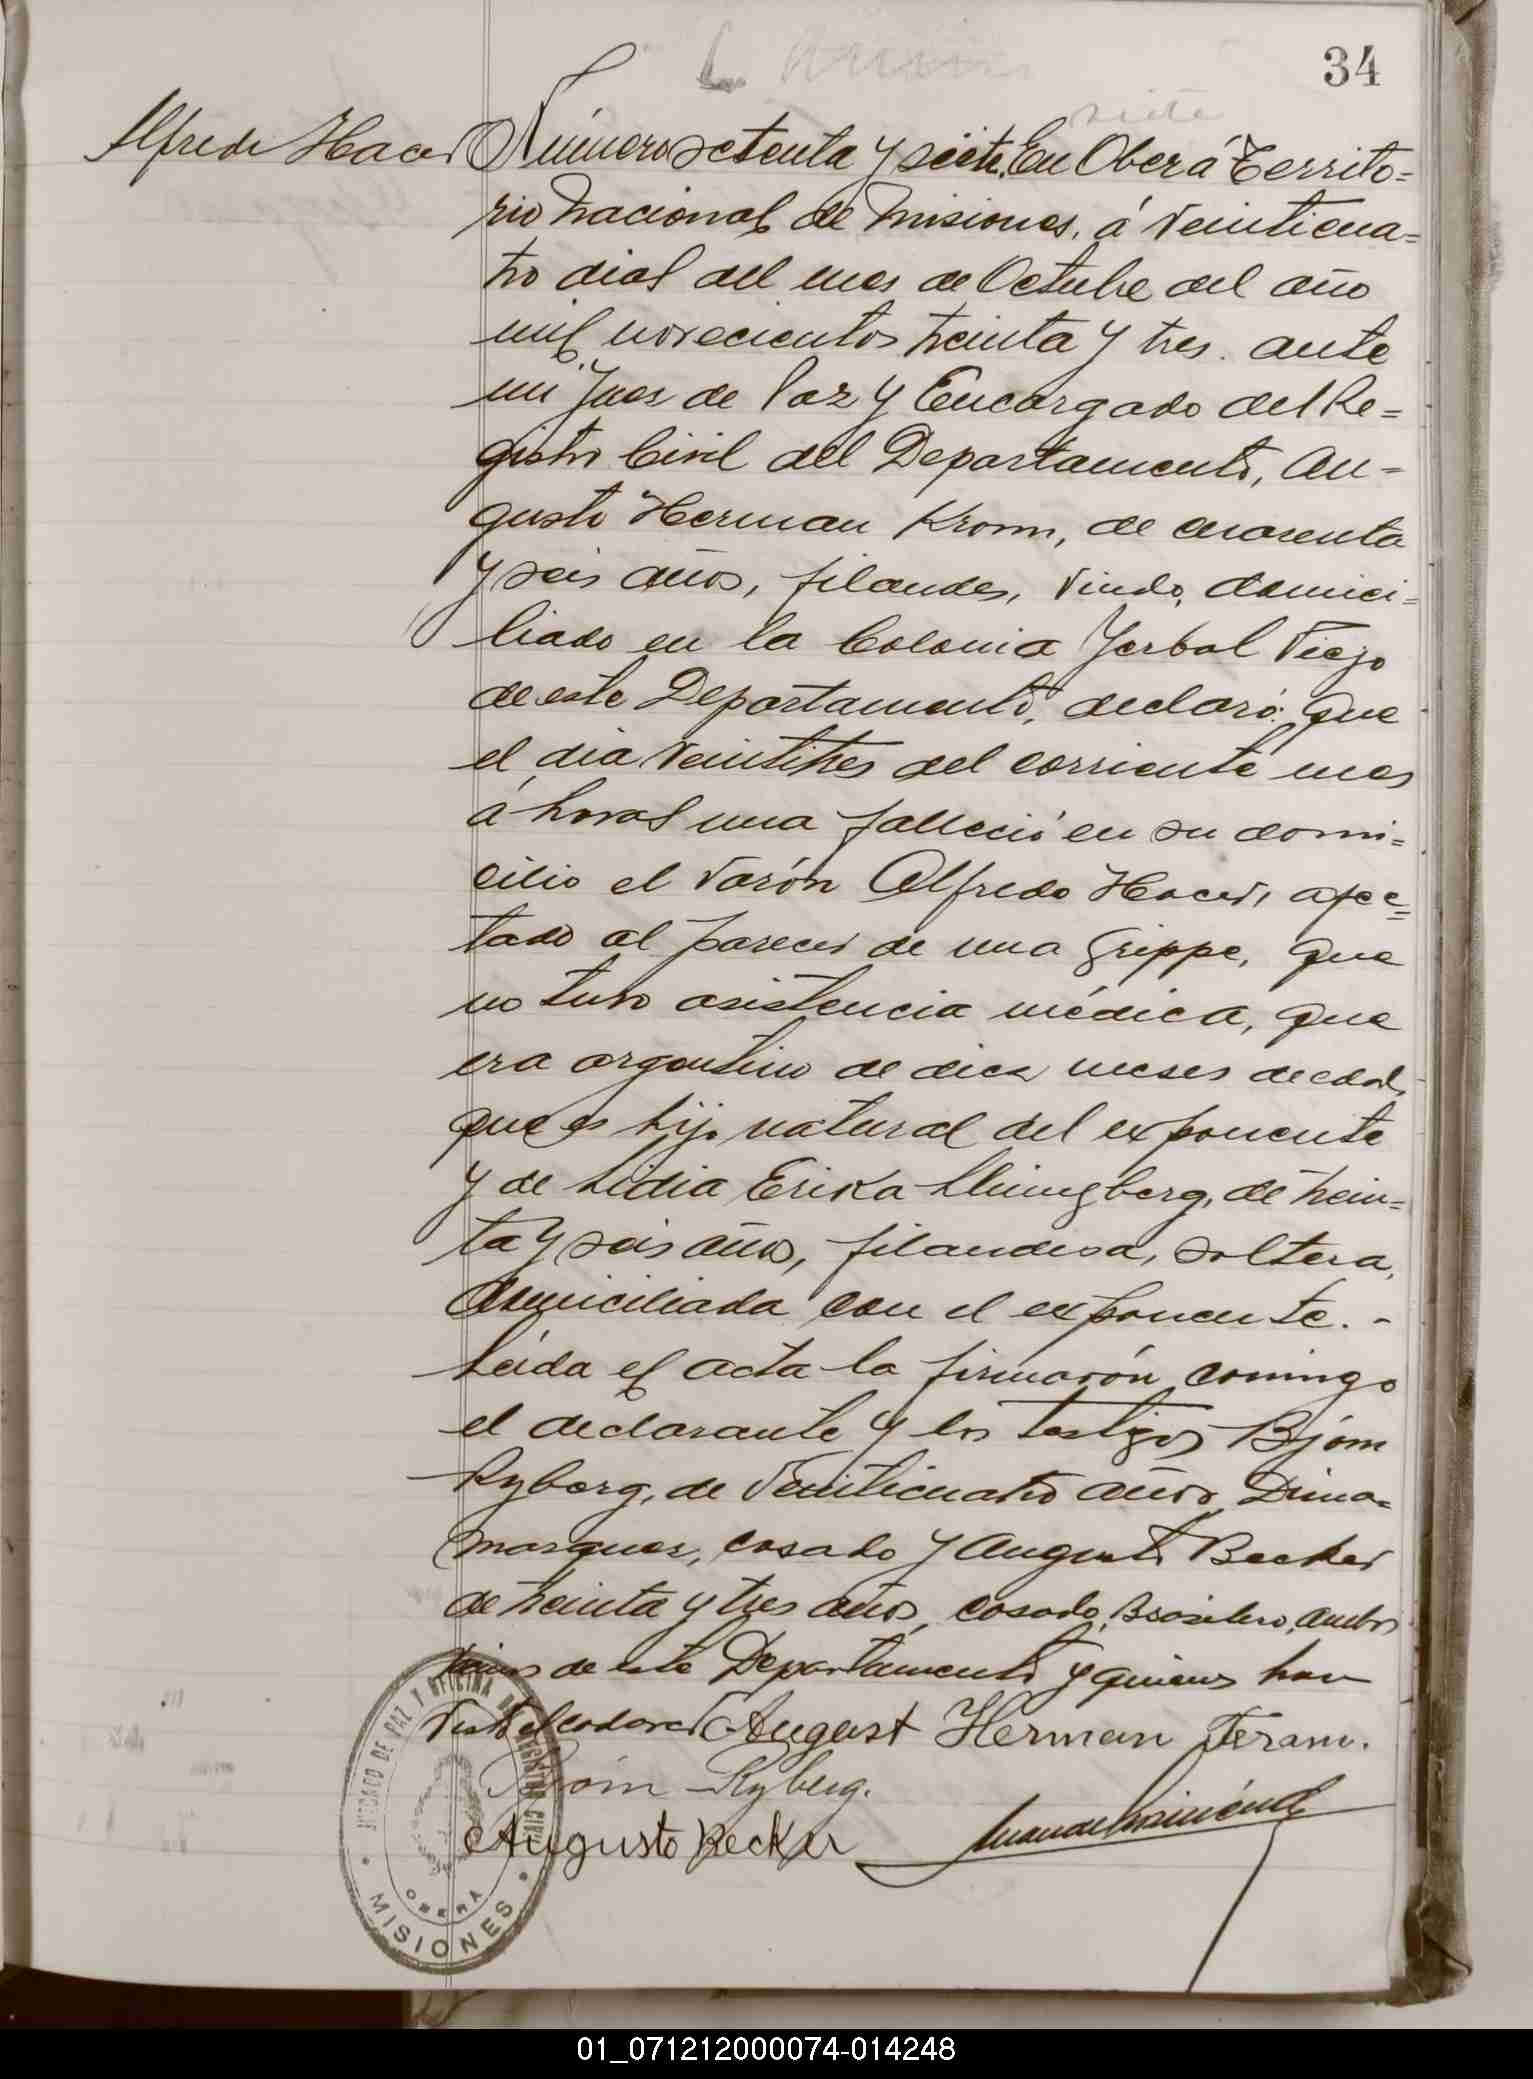 34
siete
Alfredo Hacer
Número setenta y siete. En Oberá Territo=
rio Nacional de Misiones, á veinticua=
tro dias del mes de Octubre del año
mil novecientos treinta y tres. ante
mi Jues de Paz y Encargado del Re=
gistro Civil del Departamento, Au=
gusto Herman Kronn, de cuarenta
y seis años, filandes, viudo, domici=
liado en la Colonia Yerbal Viejo
de este Departamento, declaró: Que
el dia veintitres del corriente mes
á horas una falleció en su domi=
cilio el varón Alfredo Hacer, afec=
tado al parecer de una grippe, que
no tuvo asistencia médica, que
era argentino de diez meses de edad,
que es hijo natural del exponente
y de Lidia Erika, de trein=
ta y seis años, filandesa, soltera,
domiciliada con el exponente. -
Leida el acta la firmarón conmigo
el declarante y los testigos Bjórn
Ryberg, de veinticuatro años Dina=
marques, casado y Augusto Becker
de treinta y tres años, casado, Brasilero, ambos
vecinos de este Departamento y quienes han
visto el cadaver August Herman
Bjórn Ryberg.
Augusto Becker
JUZGADO DE PAZ Y OFICINA DE REGISTRO CIVIL
OBERÁ
MISIONES
01_071212000074-014248